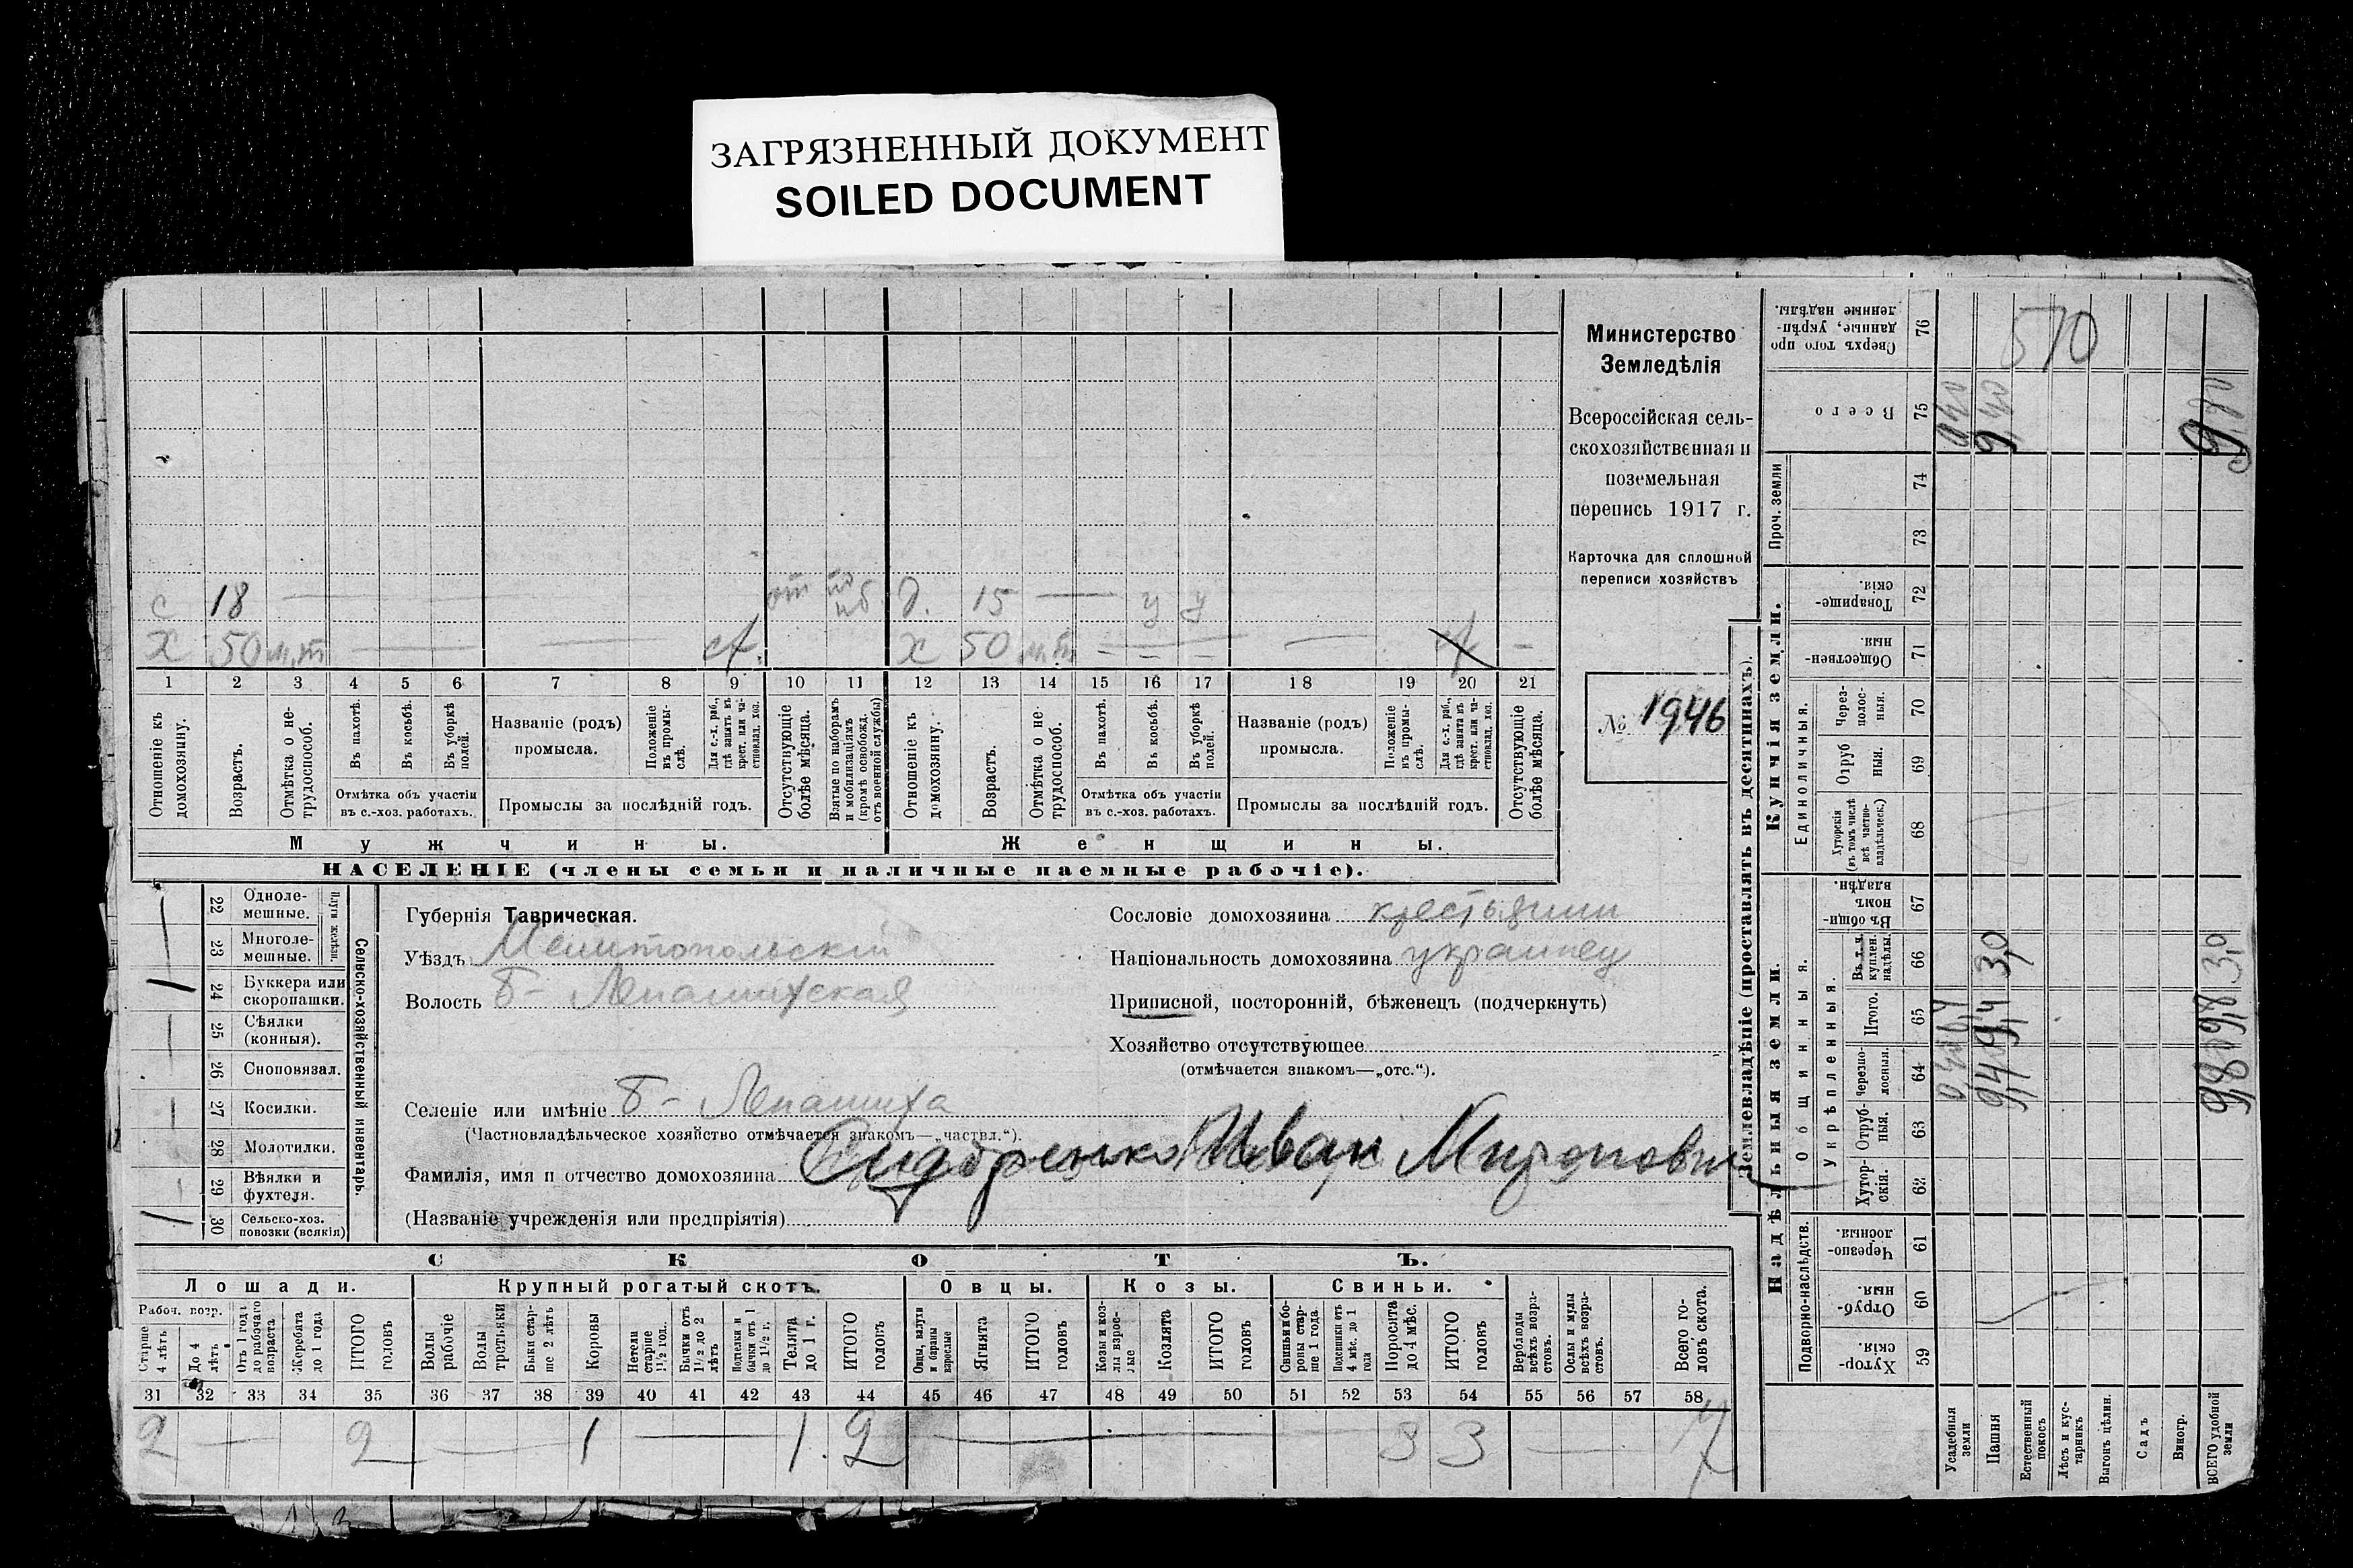 ЗАГРЯЗНЕННЫЙ ДОКУМЕНТ
SOILED DOCUMENT
с 18 — от д. 15 — у у
х 50 — — х 50 — — — — —
1 2 3 4 5 6 7 8 9 10 11 12 13 14 15 16 17 18 19 20 21
Отношеніе къ домохозяину.
Возрастъ.
Отмѣтка о не-
трудоспособ.
Въ пахотѣ.
Въ косьбѣ.
Въ уборкѣ
полей.
Отмѣтка объ участіи
въ с.-хоз. работахъ.
Названіе (родъ)
промысла.
Положеніе
въ промы-
слѣ.
Для с.-х. раб.,
гдѣ занятъ въ
крест. или ча-
стновлад. хоз.
Промыслы за послѣдній годъ.
Отсутствующіе
болѣе мѣсяца.
Взятые по наборамъ
и мобилизаціямъ
(кромѣ освобожд.
отъ военной службы)
Отношеніе къ
домохозяину.
Возрастъ.
Отмѣтка о не
трудоспособ.
Въ пахотѣ.
Въ косьбѣ.
Въ уборкѣ
полей.
Отмѣтка объ участіи
въ с.-хоз. работахъ.
Названіе (родъ)
промысла.
Положеніе
въ промы-
слѣ.
Для с.-х. раб.,
гдѣ занята въ
крест. или ча-
стновлад. хоз.
Промыслы за послѣдній годъ.
Отсутствующіе
болѣе мѣсяца.
Мужчины.
Женщины.
НАСЕЛЕНІЕ (члены семьи и наличные наемные рабочіе).
Министерство
Земледѣлія
Всероссійская сель-
скохозяйственная и
поземельная
перепись 1917 г.
Карточка для сплошной
переписи хозяйствъ
№ 1946
22 Одноле-
мешные.
23 Многоле-
мешные.
Плуги желѣзн.
24 Буккера или
скоропашки.
25 Сѣялки
(конныя).
26 Сноповязал.
27 Косилки.
28 Молотилки.
29 Вѣялки и
фухтеля.
30 Сельско-хоз.
повозки (всякія)
Сельско-хозяйственный инвентарь.
Губернія Таврическая.
Уѣздъ Мелитопольскій
Волость Б- Лепатихская
Селеніе или имѣніе Б- Лепатиха
(Частновладѣльческое хозяйство отмѣчается знакомъ—„частвл.“).
Фамилія, имя и отчество домохозяина Сидоренко Иван Миронович
(Названіе учрежденія или предпріятія)
Сословіе домохозяина крестьянин
Національность домохозяина украинец
Приписной, посторонній, бѣженецъ (подчеркнуть)
Хозяйство отсутствующее
(отмѣчается знакомъ—„отс.“).
СКОТЪ.
Лошади.
Крупный рогатый скотъ.
Овцы.
Козы.
Свиньи.
Рабоч. возр.
Старше
4 лѣтъ
До 4
лѣтъ
Отъ 1 года
до рабочаго
возраста
Жеребята
до 1 года
ИТОГО
головъ
Волы
рабочіе
Волы
третьяки
Быки стар-
ше 2 лѣтъ
Коровы
Нетели
старше
1½ год.
Бычки отъ
1½ до 2
лѣтъ
Подтелки и
бычки отъ 1
до 1½ г.
Телята
до 1 г.
ИТОГО
головъ
Овцы, валухи
и бараны
взрослые
Ягнята
ИТОГО
головъ
Козы и коз-
лы взрос-
лые
Козлята
ИТОГО
головъ
Свиньи и бо-
ровы стар-
ше 1 года
Подсвинки отъ
4 мѣс. до 1
года
Поросята
до 4 мѣс.
ИТОГО
головъ
Верблюды
всѣхъ возра-
стовъ.
Ослы и мулы
всѣхъ возра-
стовъ.
Всего го-
ловъ скота.
31 32 33 34 35 36 37 38 39 40 41 42 43 44 45 46 47 48 49 50 51 52 53 54 55 56 57 58
2 — 2 — 1 — 1 2 — 3 3 — 7
Землевладѣніе (проставлять въ десятинахъ).
Купчія земли.
Надѣльныя земли.
Сверхъ того про
данные, укрѣп-
ленные надѣлы.
76
570
Всего
75
0,40
9,40
9,80
Проч. земли
74
73
Товарище-
скій.
72
Обществен-
ныя.
71
Единоличныя.
Через-
полос-
ныя.
70
Отруб
ныя.
69
Хуторскія
(въ томъ числѣ
всѣ частно-
владѣльческ.)
68
Общинныя.
Въ общин-
номъ
владѣн.
67
Укрѣпленныя.
Въ т. ч.
куплен.
надѣлы.
66
3,0
3,0
Итого.
65
Черезпо-
лосныя.
64
9,4
Отруб-
ныя.
63
Хутор-
скія.
62
Подворно-наслѣдств.
Черезпо-
лосныя
61
Отруб-
ныя.
60
Хутор-
скія
59
Усадебныя
земли
Пашня
Естественный
покосъ
Лѣсъ и кус-
тарникъ
Выгонъ цѣлин.
Садъ
Виногр.
ВСЕГО удобной
земли